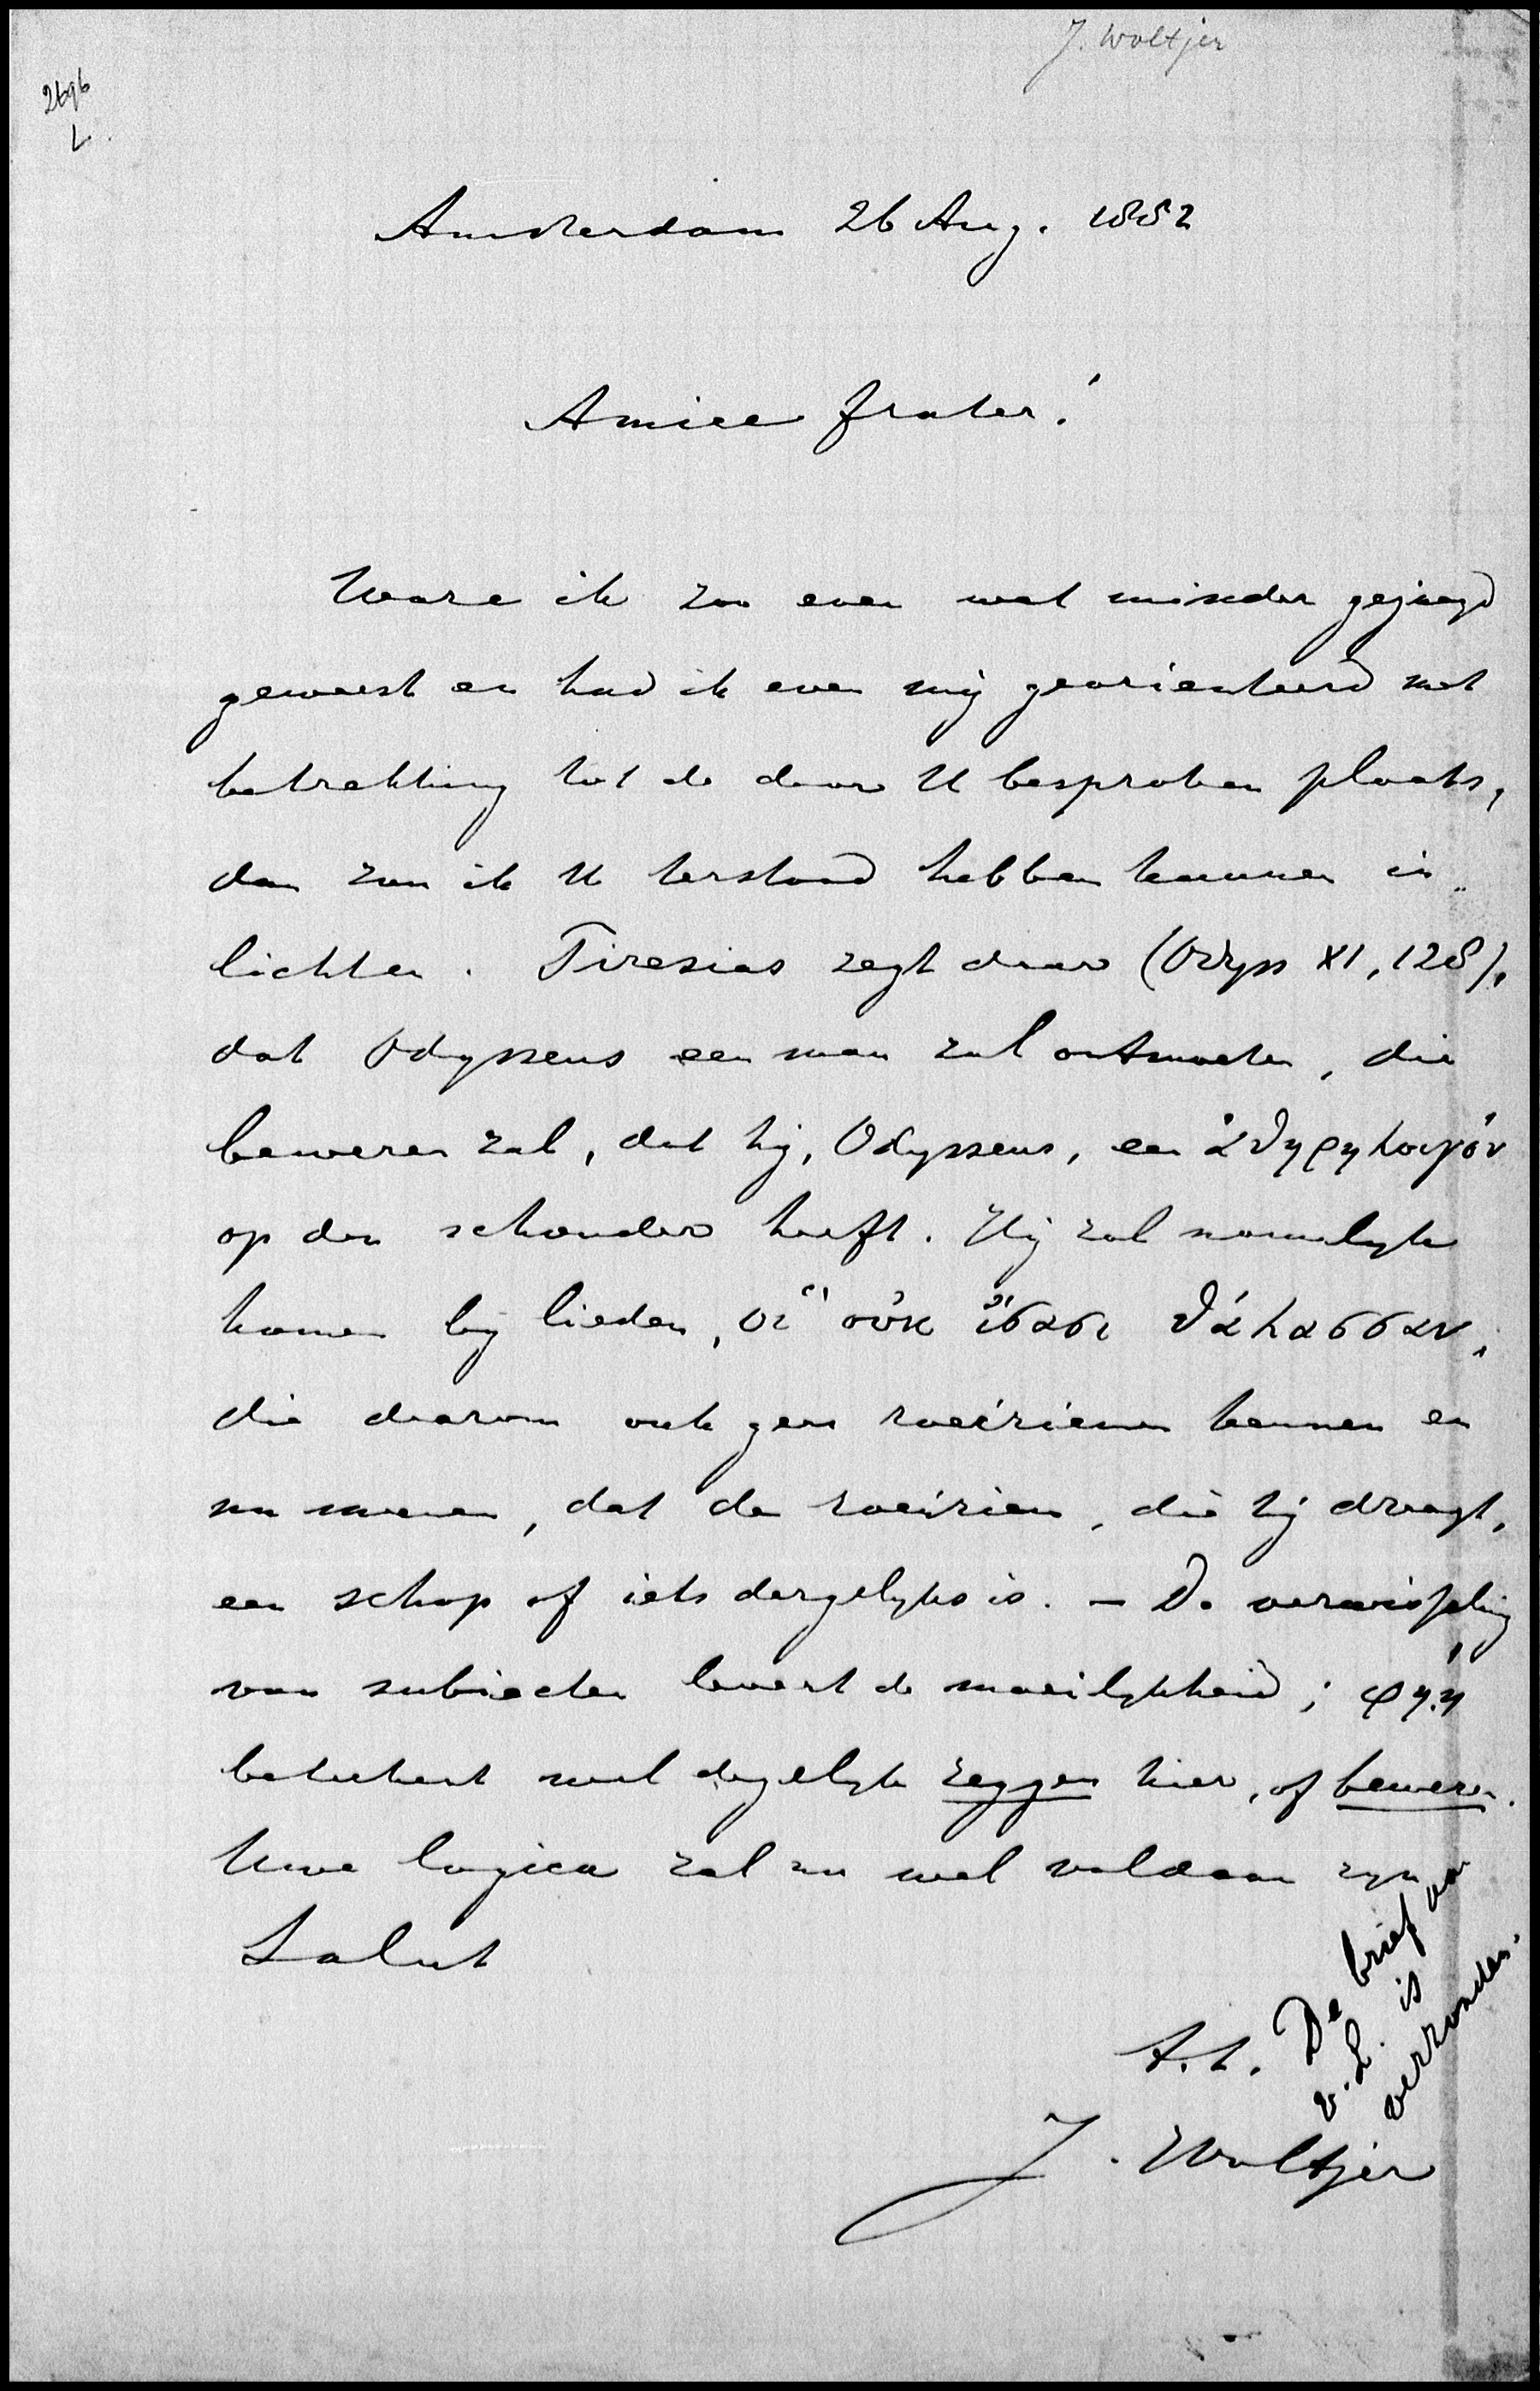 J. Woltjer
2696
L.
Amsterdam 26 Aug. 1882
Amice frater!
Ware ik zoo even wat minder gejaagd
geweest en had ik even mij georienteerd met
betrekking tot de door U besproken plaats,
dan zou ik U terstond hebben kunnen in-
lichten. Tiresias zegt daar (Odyss XI, 128),
dat Odysseus een man zal ontmoeten, die
beweren zal, dat hij, Odysseus, een ἀθηρηλοιγόν
op den schouder heeft. Hij zal namelyk
komen by lieden, οἵ οὐκ ἴσασι θάλασσαν,
die daarom ook geen roeiriemen kennen en
nu meenen, dat de roeiriem, die hij draagt,
een schop of iets dergelyks is. – De verwisseling
van subiecten levert de moeilykheid; φήῃ
beteekent wel degelyk zeggen hier, of beweren.
Uwe logica zal nu wel voldaan zyn
Salut
t.t.
J. Woltjer
De brief van
v. L. is
verzonden.